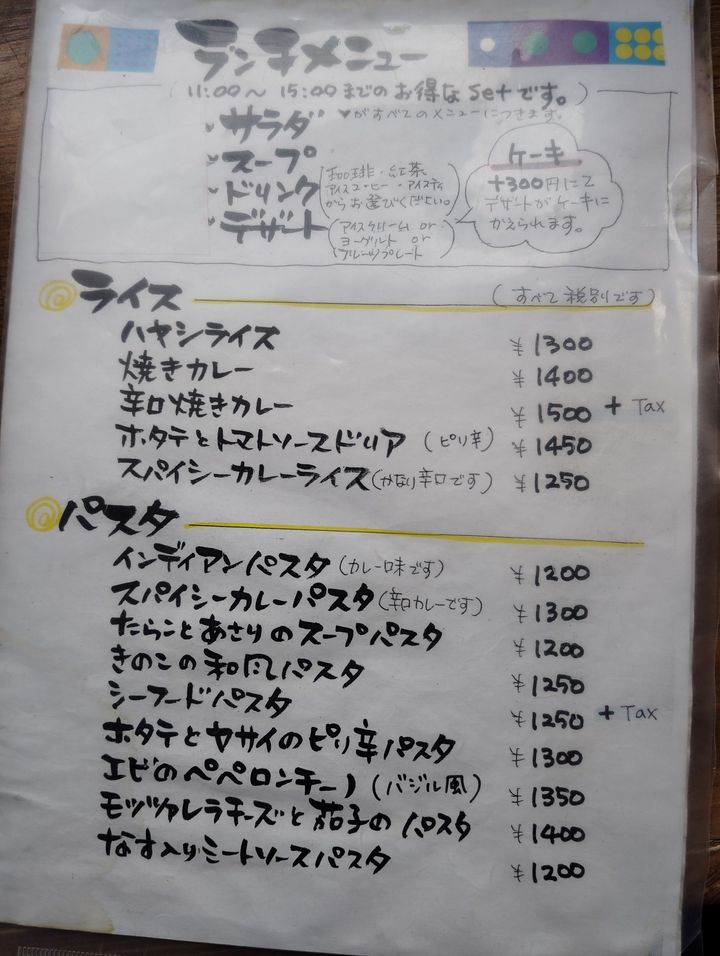 ランチメニュー
11:00～15:00までのお得なsetです。
♥がすべてのメニューにつきます。
♥サラダ
♥スープ
♥ドリンク
(珈琲・紅茶
アイスコーヒー・アイスティ
からお選びください。)
♥デザート
(アイスクリーム or
ヨーグルト or
(フルーツ)プレート)
ケーキ
+300円にて
デザートがケーキに
かえられます。
ライス (すべて税別です)
ハヤシライス ¥1300
焼きカレー ¥1400
辛口焼きカレー ¥1500 + Tax
ホタテとトマトソースドリア (ピリ辛) ¥1450
スパイシーカレーライス(かなり辛口です) ¥1250
パスタ
インディアンパスタ (カレー味です) ¥1200
スパイシーカレーパスタ(辛口カレーです) ¥1300
たらことあさりのスープパスタ ¥1200
きのこの和風パスタ ¥1250
シーフードパスタ ¥1250 + Tax
ホタテとヤサイのピリ辛パスタ ¥1300
エビのペペロンチーノ (バジル風) ¥1350
モッツァレラチーズと茄子のパスタ ¥1400
なす入りミートソースパスタ ¥1200